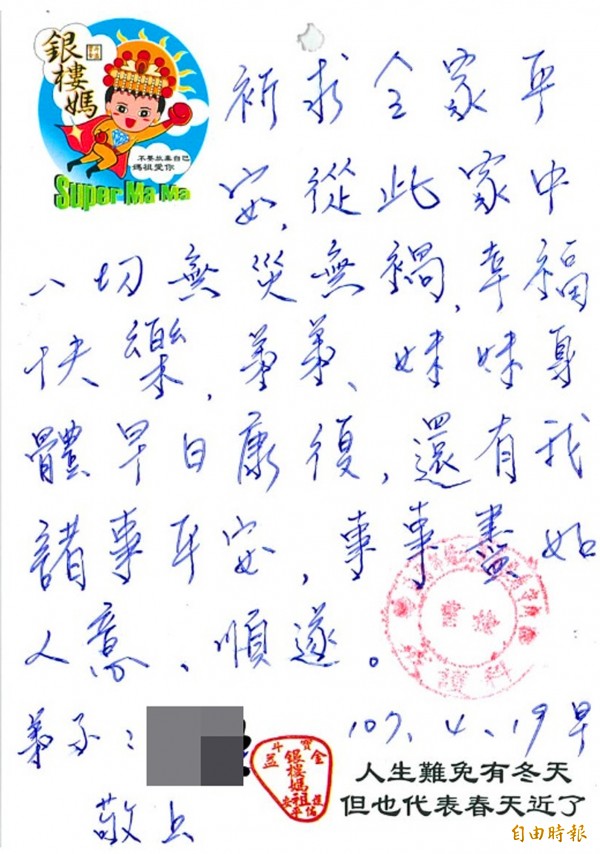 銀樓媽
不要放棄自己
媽祖愛你
Super Ma Ma
祈求全家平
安,從此家中
一切無災無禍,幸福
快樂,弟弟、妹妹身
體早日康復,還有我
諸事平安,事事盡如
人意、順遂。
弟子:
107.4.19早
敬上
金
銀樓媽祖
人生難免有冬天
但也代表春天近了
自由時報